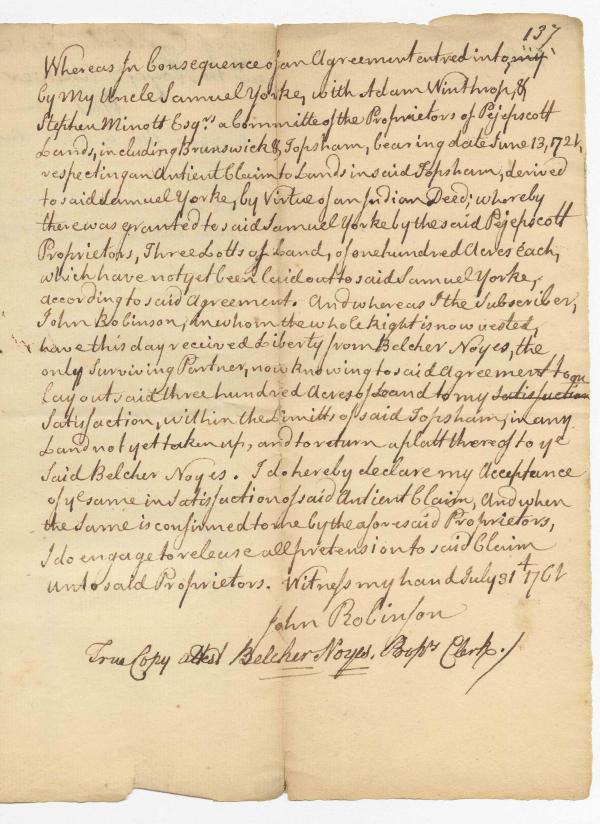 137
Whereas In Consequence of an Agreement entred into
by My Uncle Samuel Yorke, with Adam Winthrop, &
Stephen Minott Esqrs a Committee of the Proprietors of Pejepscott
Lands, including Brunswick & Topsham, bearing date June 13, 1721,
respecting an Antient Claim to Lands in said Topsham, derived
to said Samuel Yorke, by Virtue of an Indian Deed; whereby
there was granted to said Samuel Yorke by the said Pejepscott
Proprietors, Three Lotts of Land, of one hundred Acres Each,
which have not yet been laid out to said Samuel Yorke,
according to said Agreement. And whereas I the Subscriber,
John Robinson, in whom the whole Right is now vested,
have this day received Liberty from Belcher Noyes, the
only Surviving Partner, now knowing to said Agreement to
lay out said three hundred Acres of Land to my Satisfaction
Satisfaction, within the Limitts of said Topsham, in any
Land not yet taken up, and to return a platt thereof to ye
said Belcher Noyes. I do hereby declare my Acceptance
of ye same in Satisfaction of said Antient Claim, And when
the Same is confirmed to me by the aforesaid Proprietors,
I do engage to release all pretension to said Claim
unto said Proprietors. Witness my hand July 31st 1761
John Robinson
True Copy attest Belcher Noyes. Proprs Clerk.